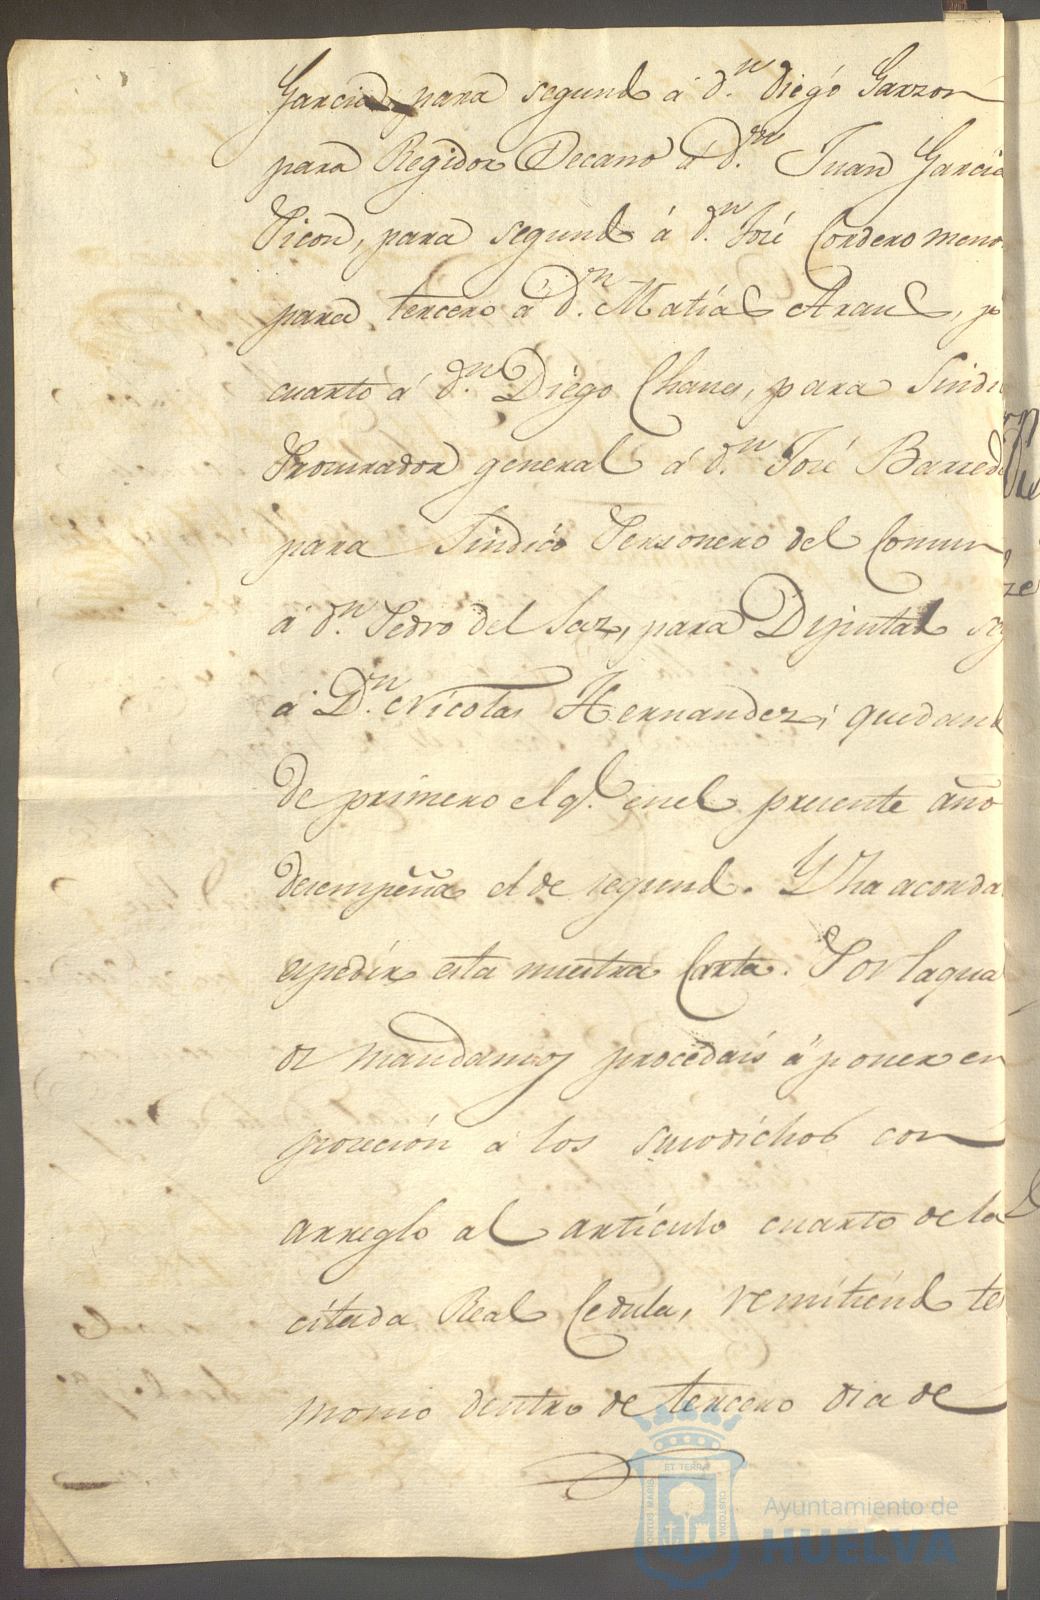 Garcia, para segundo á d.n Diego Garzon
para Regidor Decano á d.n Juan Garcia
Picon, para segundo á d.n José Cordero meno
para tercero á d.n Matias Arauz, p
cuarto á d.n Diego Chaves, para Sindi
Procurador general á d.n José Barred
para Sindico Personero del Comun
á d.n Pedro del Saz, para Diputado seg
á D.n Nicolas Hernandez; quedand
de primero el q.e en el presente año
desempeña el de segundo. Y ha acorda
espedir esta nuestra Carta. Por la qua
os mandamos procedais á poner en
posecion á los susodichos con
arreglo al articulo cuarto de la
citada Real Cedula, remitiendo tes
monio dentro de tercero dia de
ET TERRAE
PORTUS MARIS
CUSTODIA
Ayuntamiento de
HUELVA